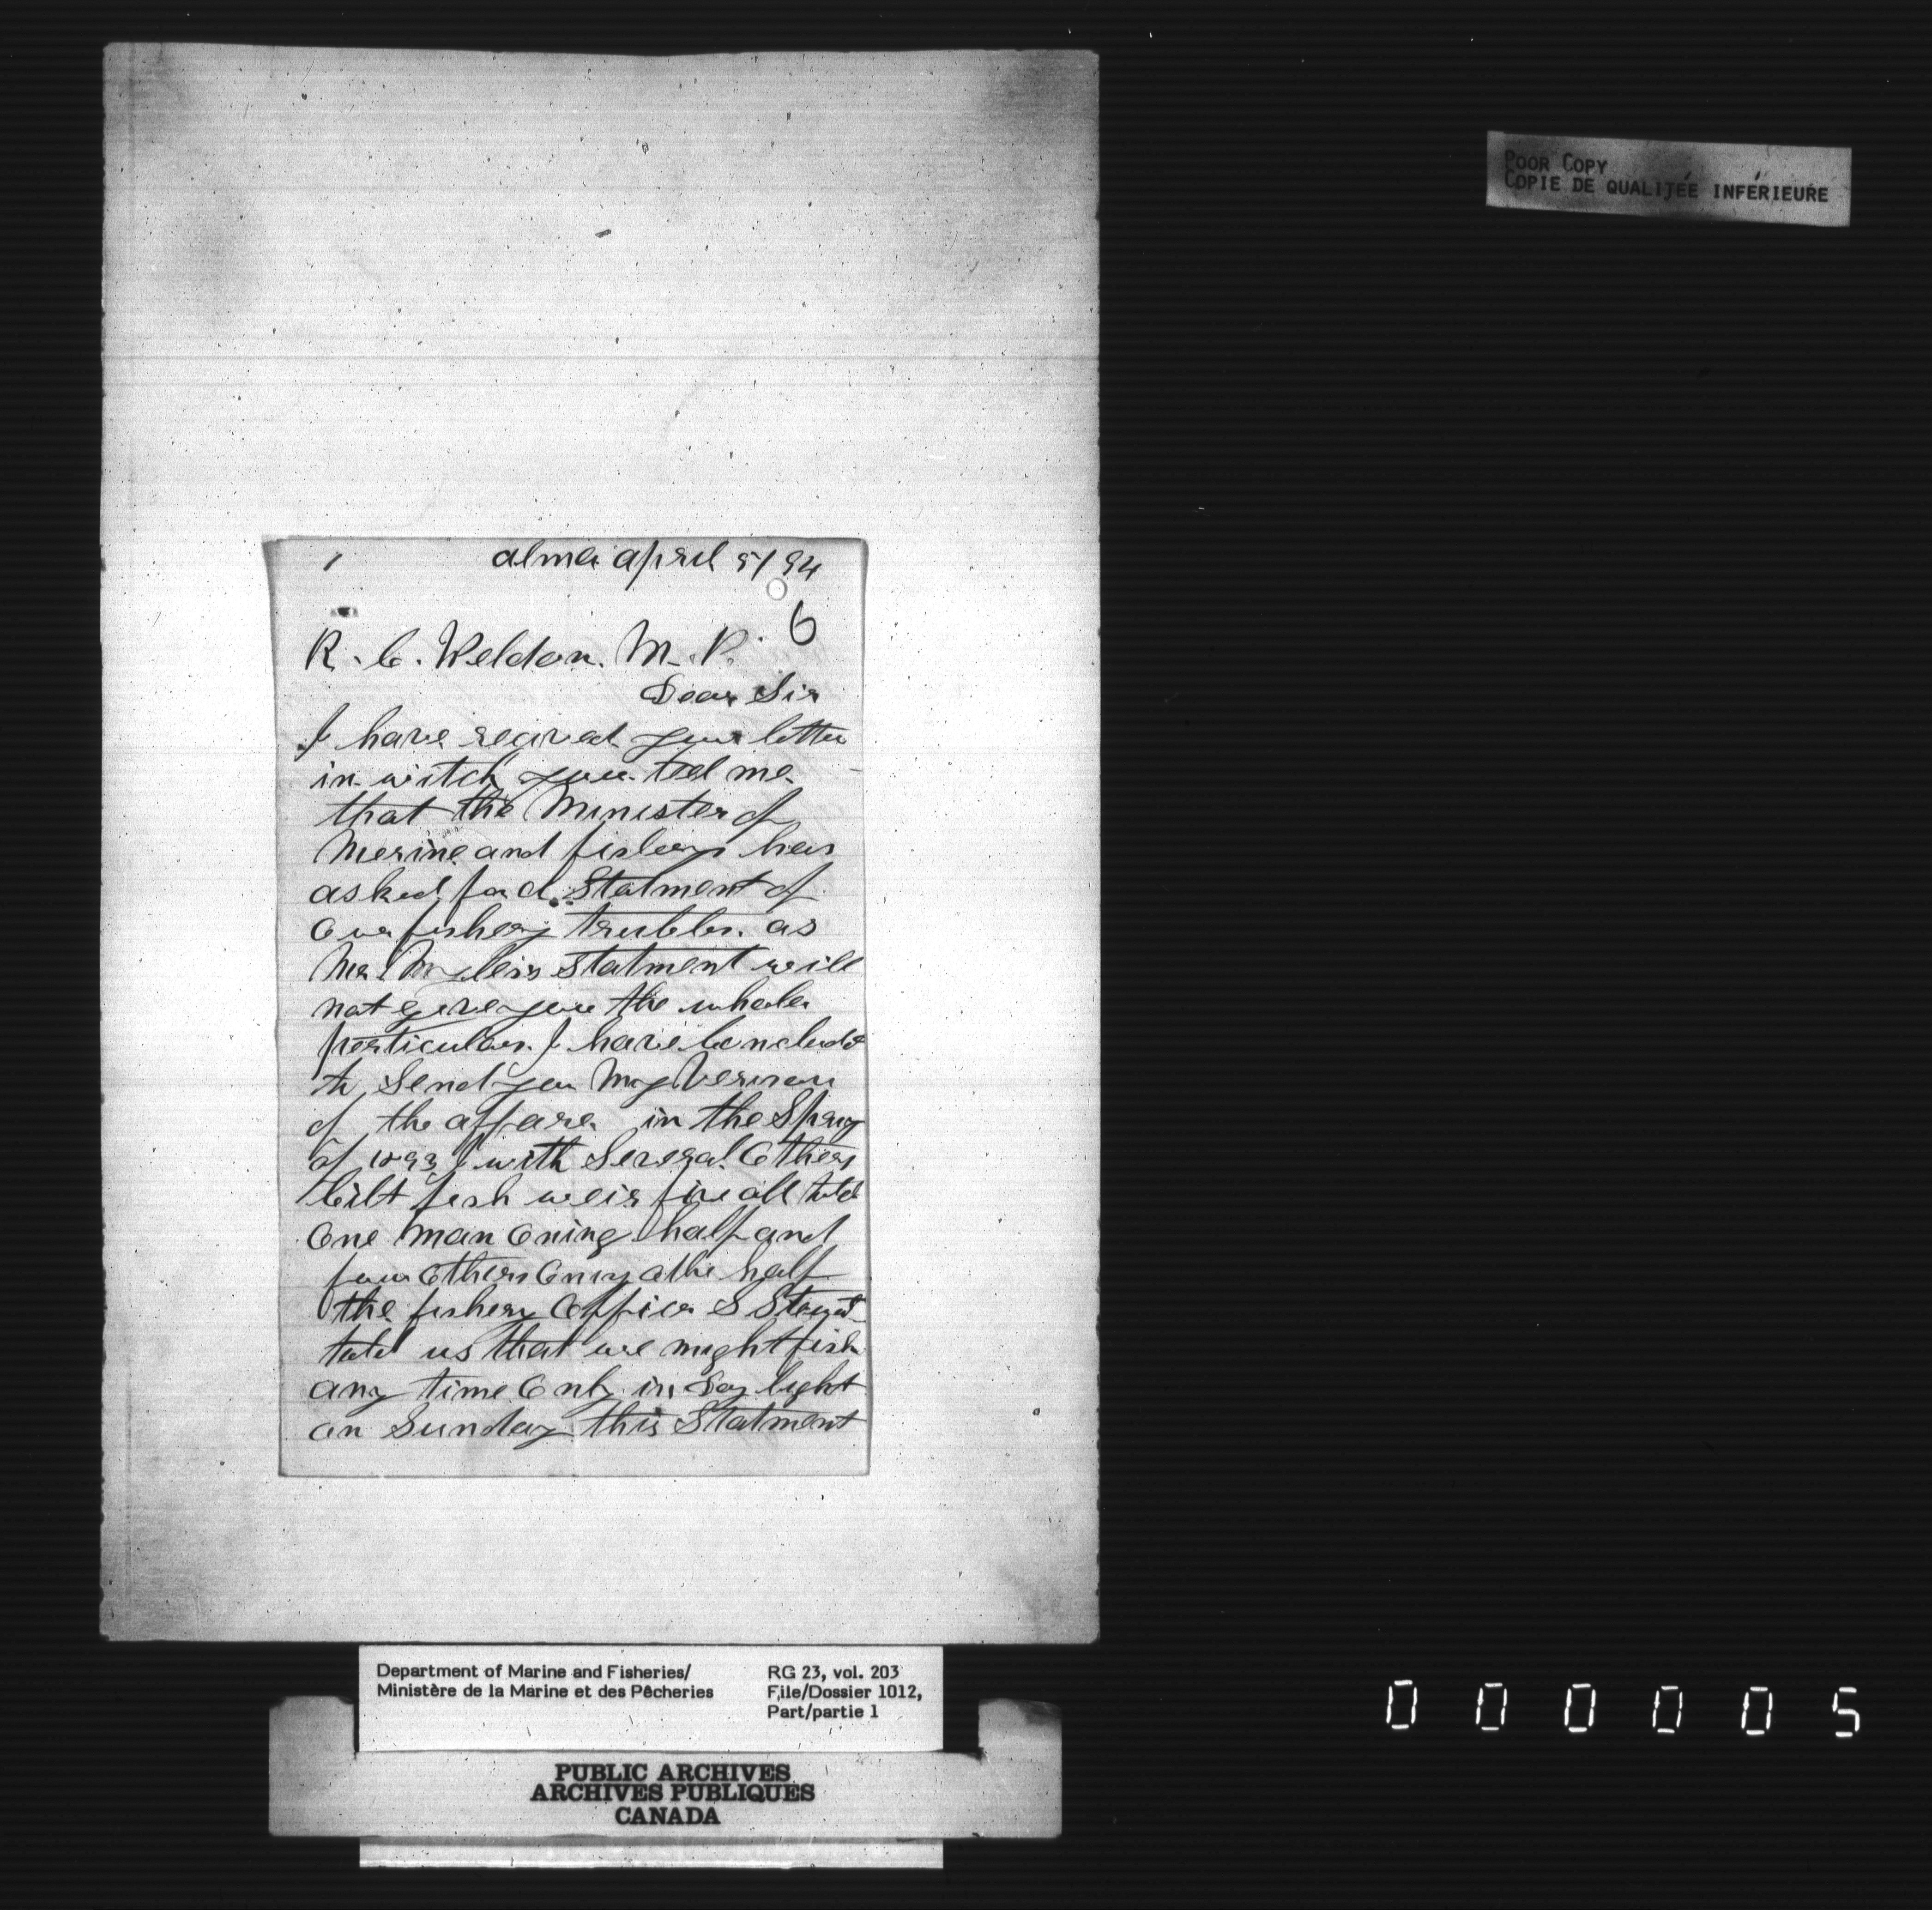 POOR COPY
COPIE DE QUALITÉE INFÉRIEURE
1
alma april 5/94
6
R. C. Weldon. M. P.
Dear Sir
I have recived your letter
in witch you tel me
that the Minister of
Merine and fisherys has
asked for a Statment of
Our fishery trubles. as
Mr Myleis Statment will
not give you the whole
perticulars. I have Conclude
to Send you My Version
of the affare in the Spring
of 1893 I with Several Others
bilt fish weir five all told
One Man Oning half and
four Others Oning othe half
the fishery Officer S
told us that we might fish
any time Only in Day light
on Sunday this Statment
Department of Marine and Fisheries/
Ministère de la Marine et des Pêcheries
RG 23, vol. 203
File/Dossier 1012,
Part/partie 1
PUBLIC ARCHIVES
ARCHIVES PUBLIQUES
CANADA
000005